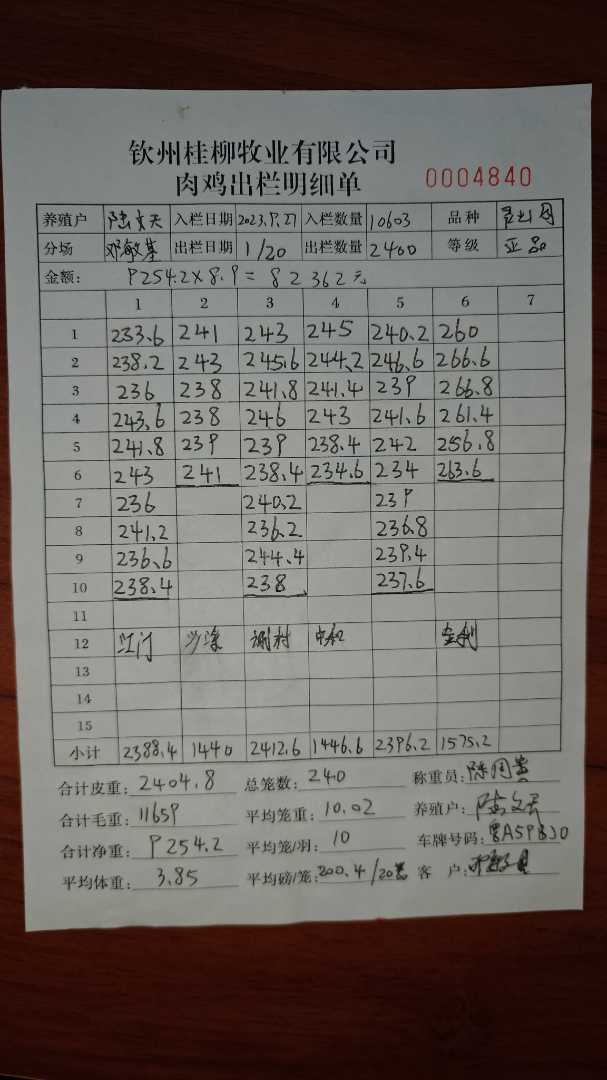 钦州桂柳牧业有限公司
肉鸡出栏明细单 0004840
养殖户 陆文天 入栏日期 2023.9.27 入栏数量 10603 品种
分场 邓敏基 出栏日期 1/20 出栏数量 2400 等级 正品
金额: 9254.2×8.9=82362元
1 2 3 4 5 6 7
1 233.6 241 243 245 240.2 260
2 238.2 243 245.6 244.2 246.6 266.6
3 236 238 241.8 241.4 239 266.8
4 243.6 238 246 243 241.6 261.4
5 241.8 239 239 238.4 242 256.8
6 243 241 238.4 234.6 234 263.6
7 236 240.2 239
8 241.2 236.2 236.8
9 236.6 244.4 239.4
10 238.4 238 237.6
11
12 江门 沙溪 谢村 中和 金利
13
14
15
小计 2388.4 1440 2412.6 1446.6 2396.2 1575.2
合计皮重: 2404.8 总笼数: 240 称重员:
合计毛重: 11659 平均笼重: 10.02 养殖户: 陆文天
合计净重: 9254.2 平均笼/羽: 10 车牌号码:
平均体重: 3.85 平均磅/笼: 200.4/20笼 客户: